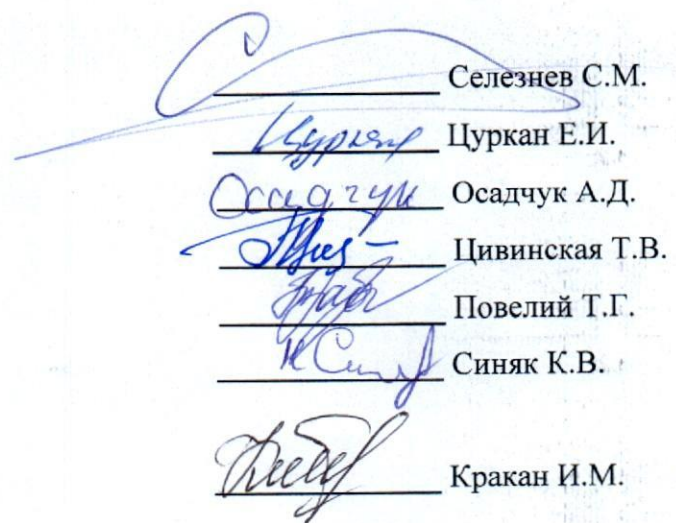 Селезнев С.М.
Цуркан Цуркан Е.И.
Осадчук Осадчук А.Д.
Цивинская Т.В.
Повелий Т.Г.
Синяк К.В.
Кракан И.М.